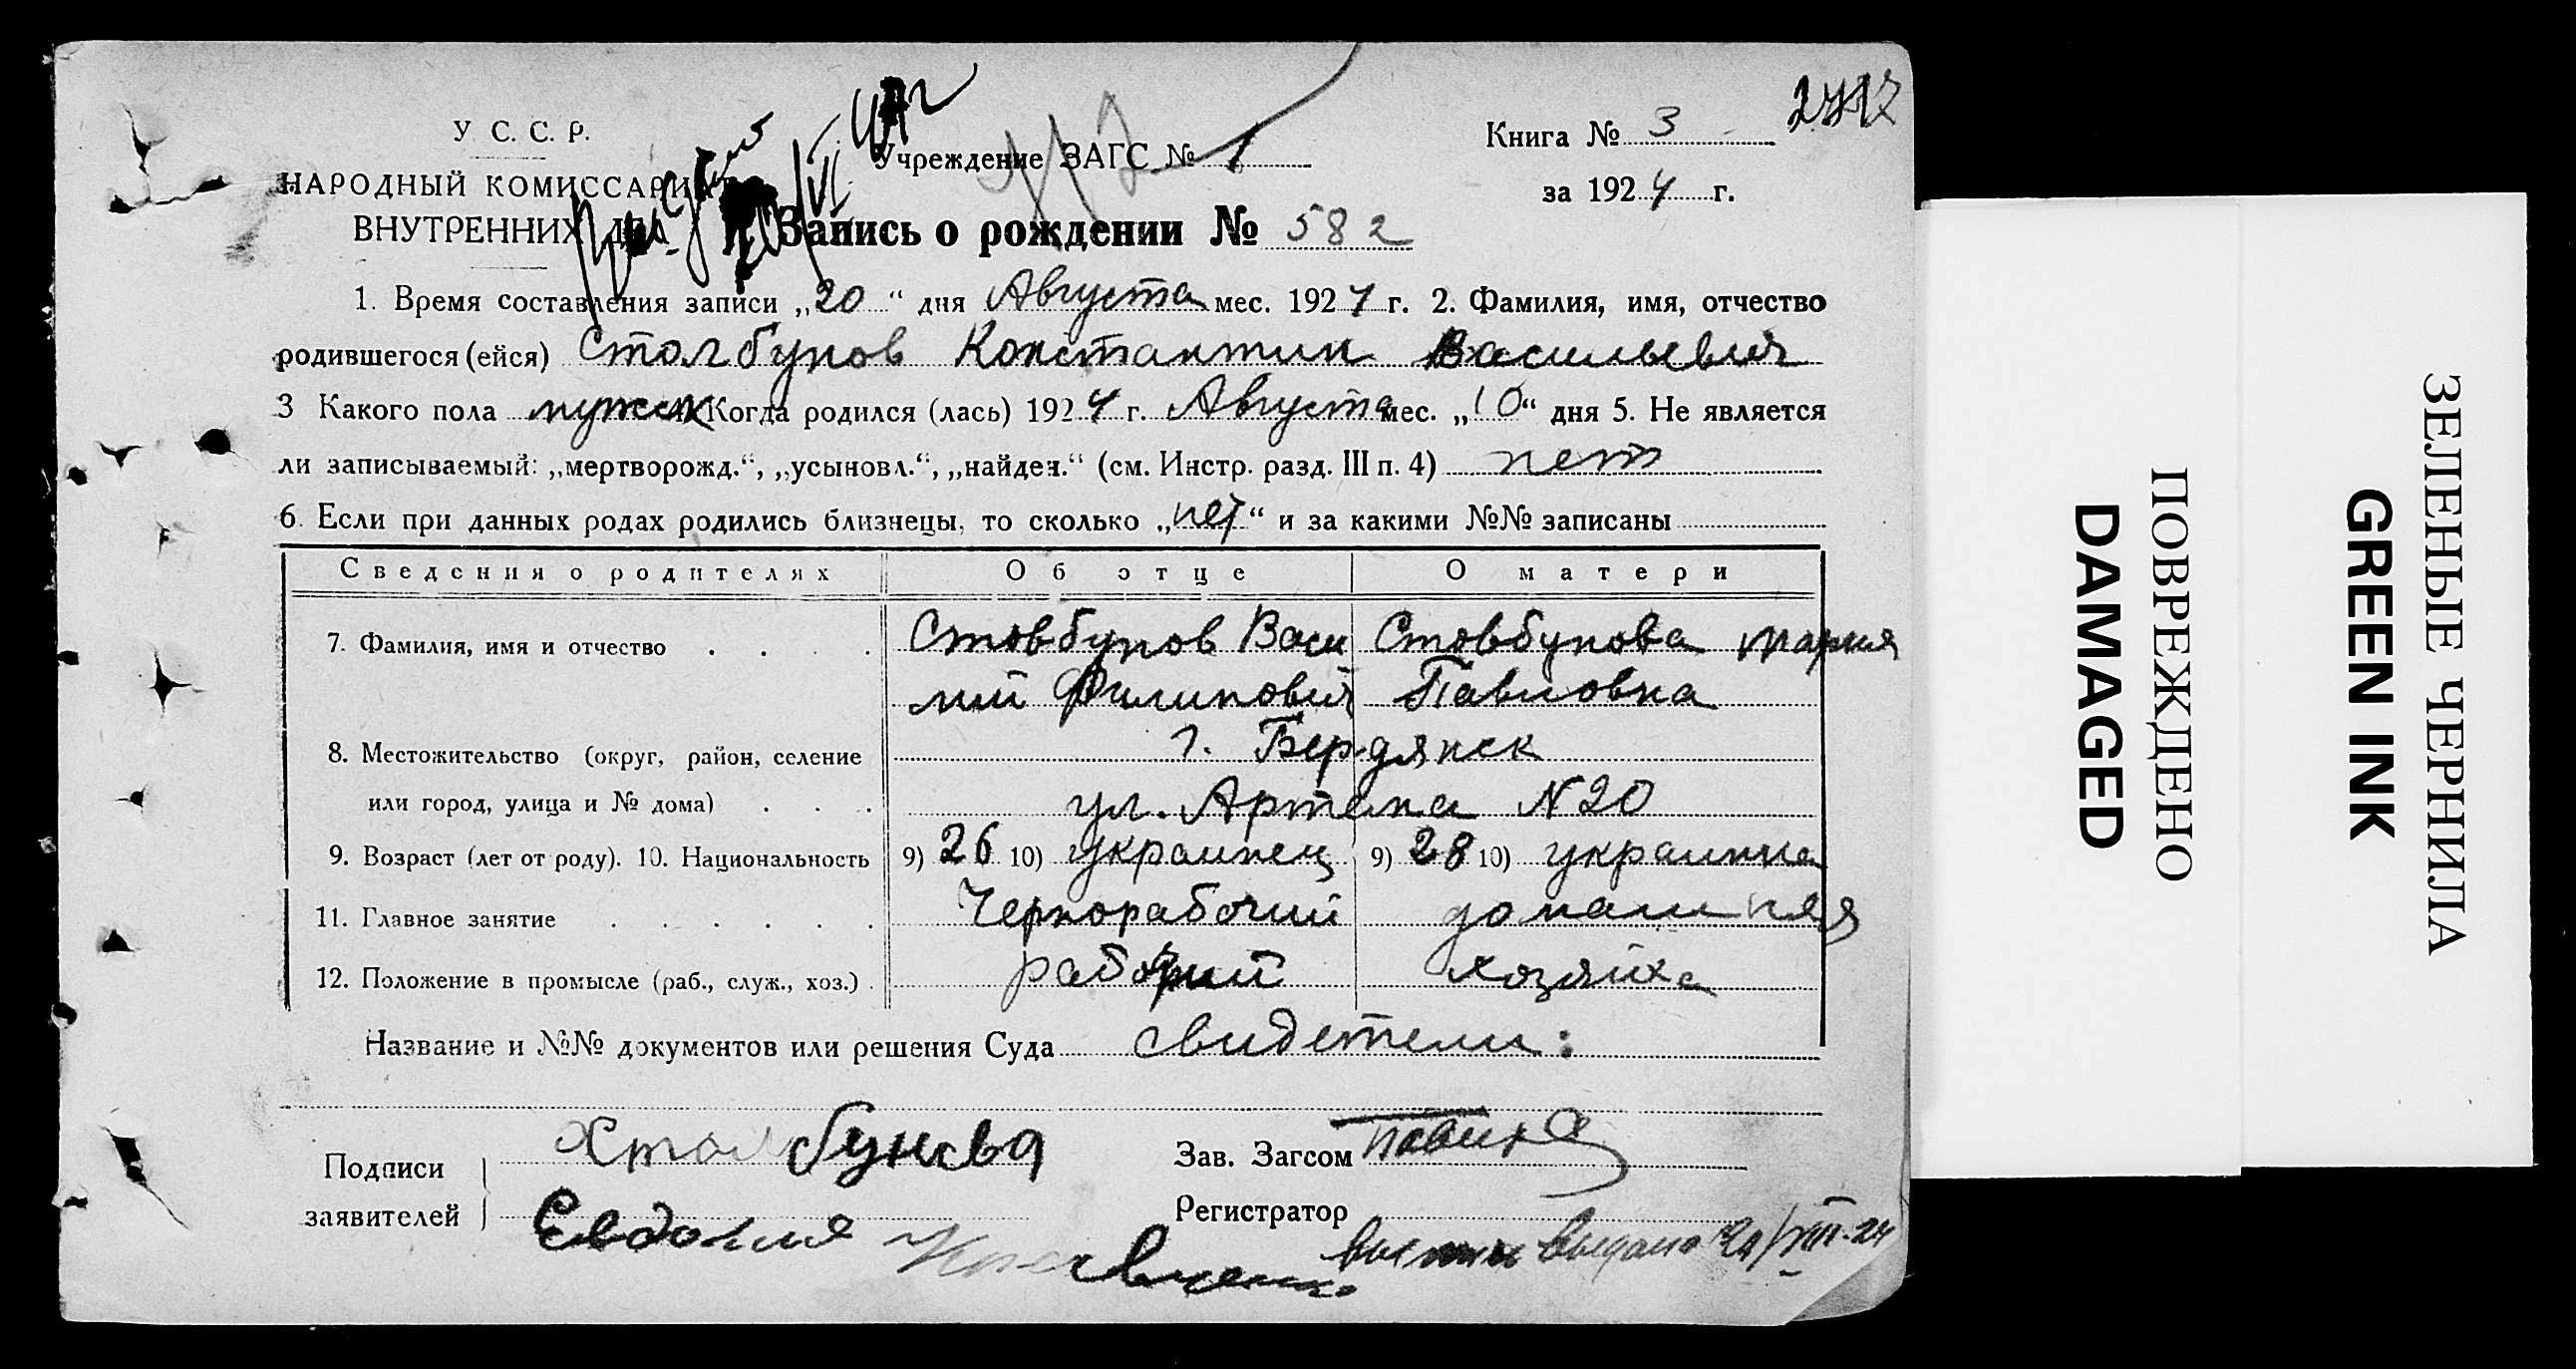 2717
У С. С. Р.
НАРОДНЫЙ КОМИССАРИАТ
ВНУТРЕННИХ ДЕЛ
Учреждение ЗАГС № 1
Книга № 3
за 1924 г.
Запись о рождении № 582
1. Время составления записи „20“ дня Августа мес. 1924 г. 2. Фамилия, имя, отчество
родившегося (ейся) Столбунов Константин Васильевич
3 Какого пола мужск 4. Когда родился (лась) 1924 г. Августа мес. „10“ дня 5. Не является
ли записываемый: „мертворожд.“, „усыновл.“, „найден.“ (см. Инстр. разд. III п. 4) нет
6. Если при данных родах родились близнецы, то сколько „нет“ и за какими №№ записаны
Сведения о родителях Об отце О матери
7. Фамилия, имя и отчество . . . . Стовбунов Васи Стовбунова Мария
лий Филипович Павловна
8. Местожительство (округ, район, селение г. Бердянск
или город, улица и № дома) . . . ул. Артема N 20
9. Возраст (лет от роду). 10. Национальность 9) 26 10) украинец 9) 28 10) украинка
11. Главное занятие . . . . . . Чернорабочий домашняя
12. Положение в промысле (раб., служ., хоз.) . рабочий хозяйка
Название и №№ документов или решения Суда свидетели:
Подписи
заявителей
Хтолбунова
Евдокия
Зав. Загсом
Регистратор
выпись выдана 21/VIII-24
ПОВРЕЖДЕНО
DAMAGED
ЗЕЛЕНЫЕ ЧЕРНИЛА
GREEN INK